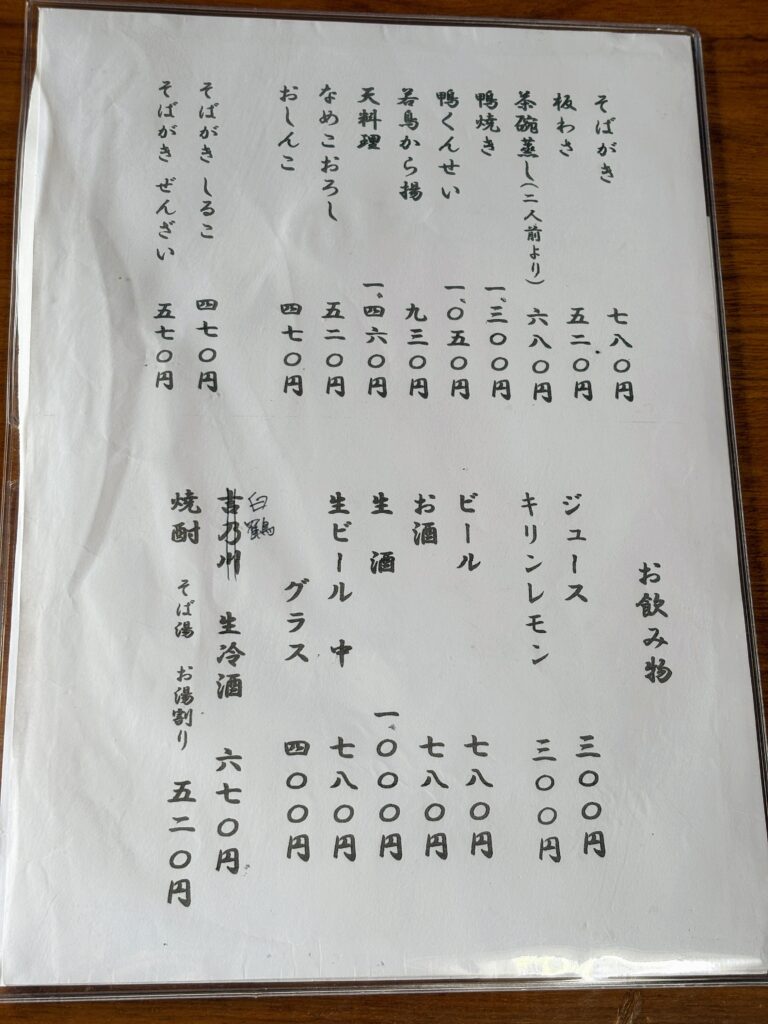 そばがき 七八〇円
板わさ 五二〇円
茶碗蒸し(二人前より) 六八〇円
鴨焼き 一、三〇〇円
鴨くんせい 一、〇五〇円
若鳥から揚 九三〇円
天料理 一、四六〇円
なめこおろし 五二〇円
おしんこ 四七〇円
そばがき しるこ 四七〇円
そばがき ぜんざい 五七〇円
お飲み物
ジュース 三〇〇円
キリンレモン 三〇〇円
ビール 七八〇円
お酒 七八〇円
生 酒 一、〇〇〇円
生ビール 中 七八〇円
グラス 四〇〇円
白鶴
吉乃川 生冷酒 六七〇円
焼酎 そば湯 お湯割り 五二〇円